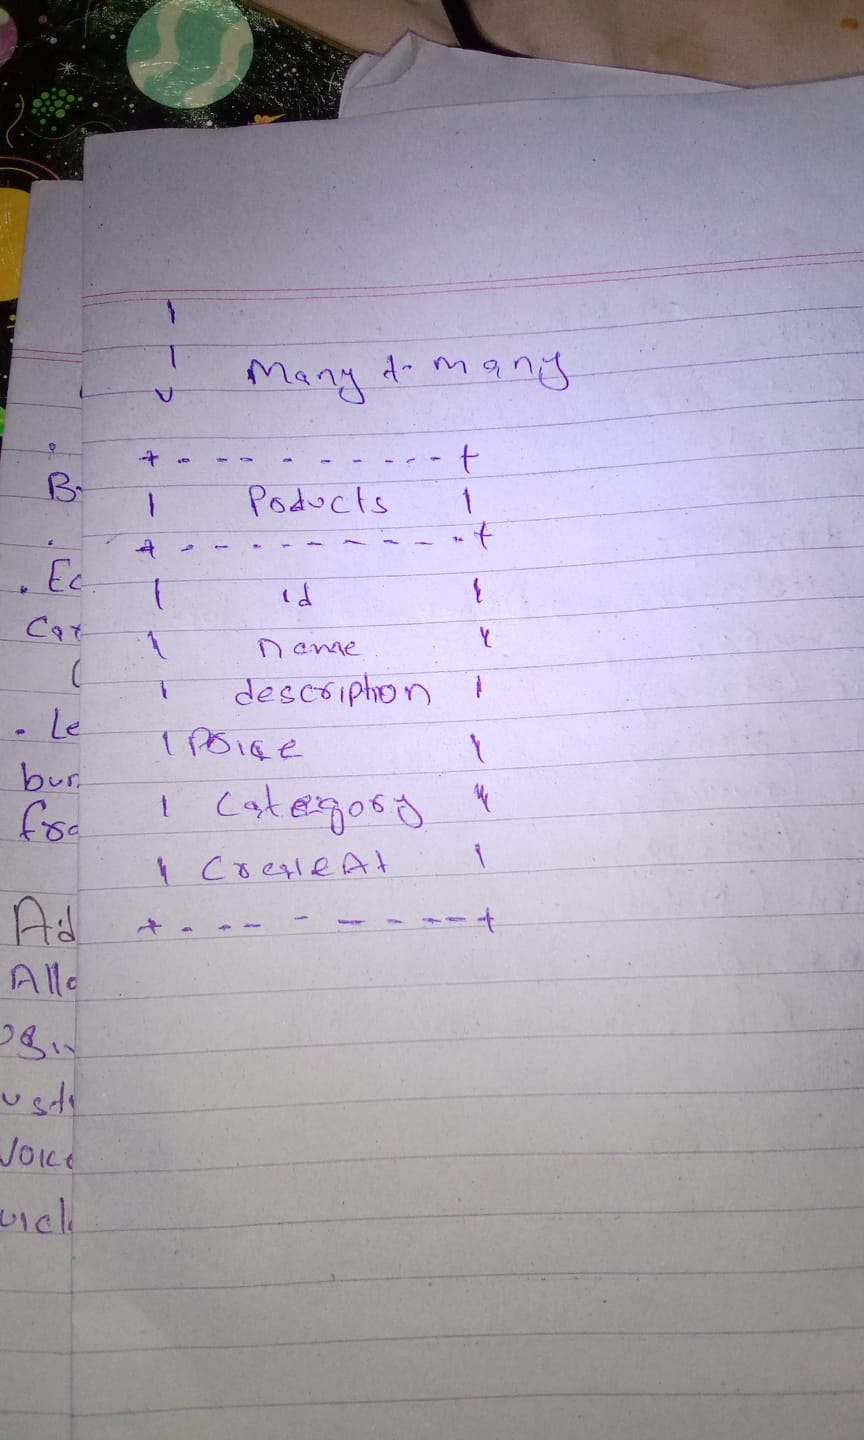 |
| Many to many
v
+ - - - - - - - - - +
| Poducts |
+ - - - - - - - - - +
| id |
| name |
| description |
| Price |
| Category |
| CreateAt |
+ - - - - - - - - - +
B
. Ec
Cat
(
- Le
bun
fro
Ad
Allo
ust
voice